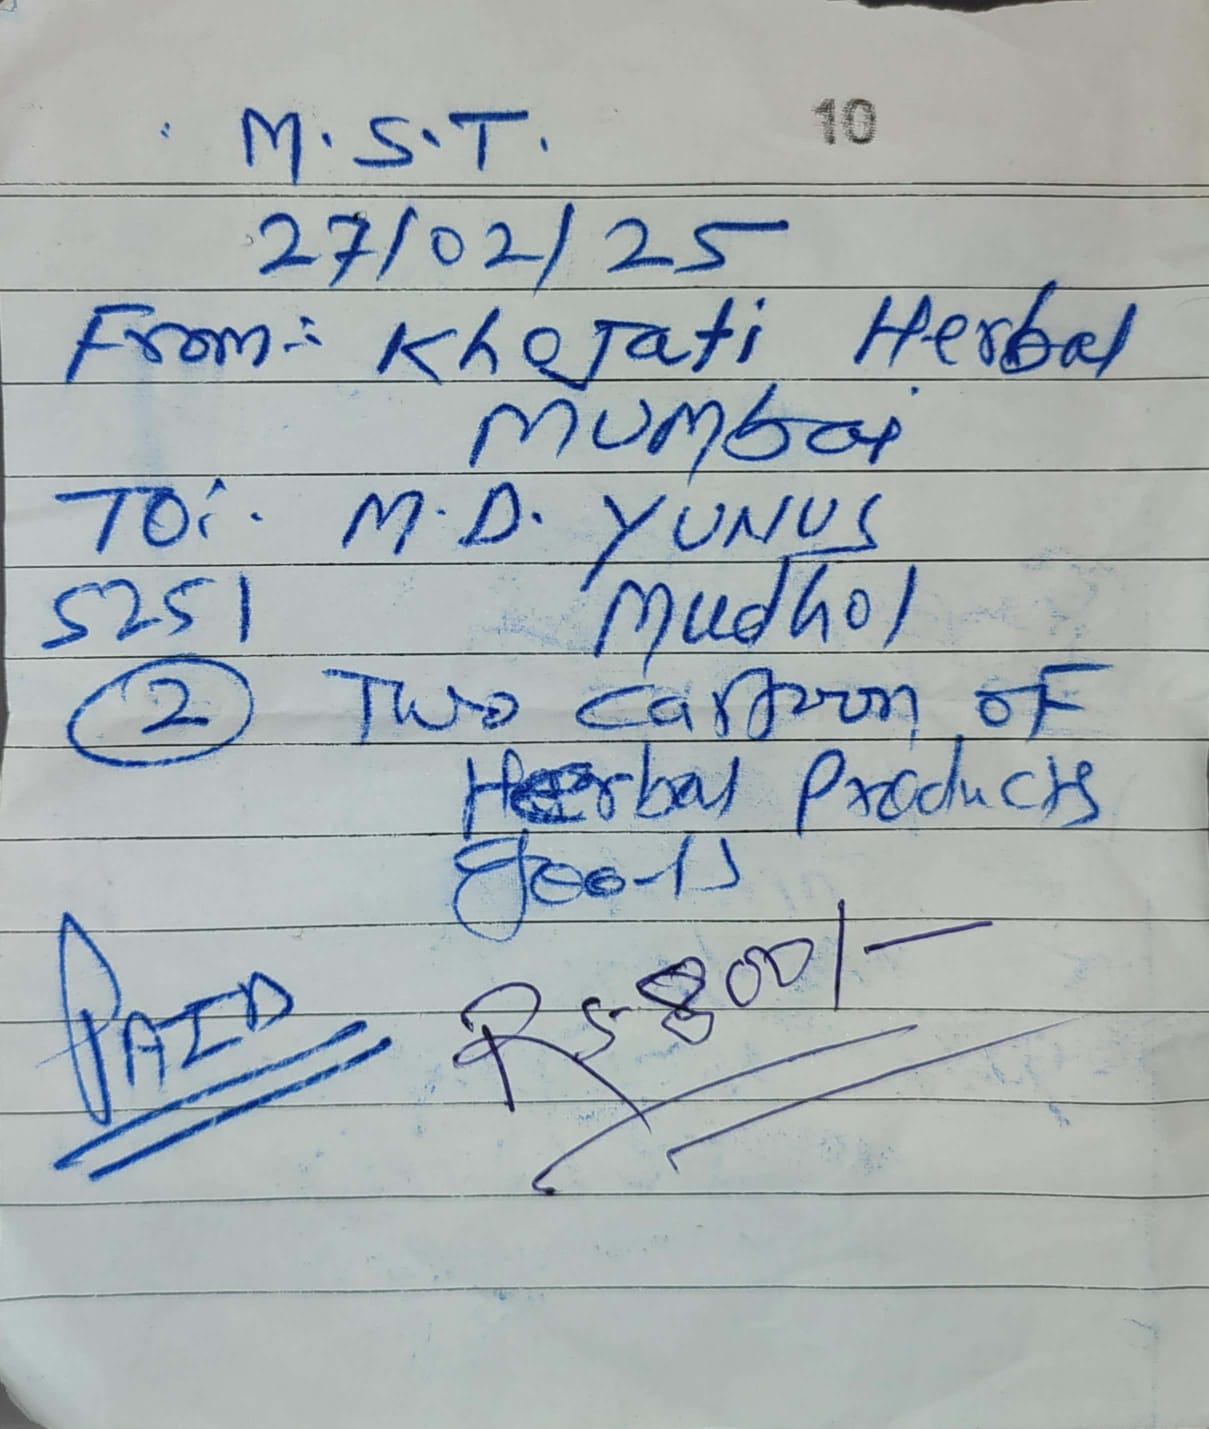 M.S.T. 10
27/02/25
From:- Khojati Herbal
Mumbai
TO:. M.D. YUNUS
5251 Mudhol
2 Two cartoon of
Herbal Products
goods
PAID Rs 800/-